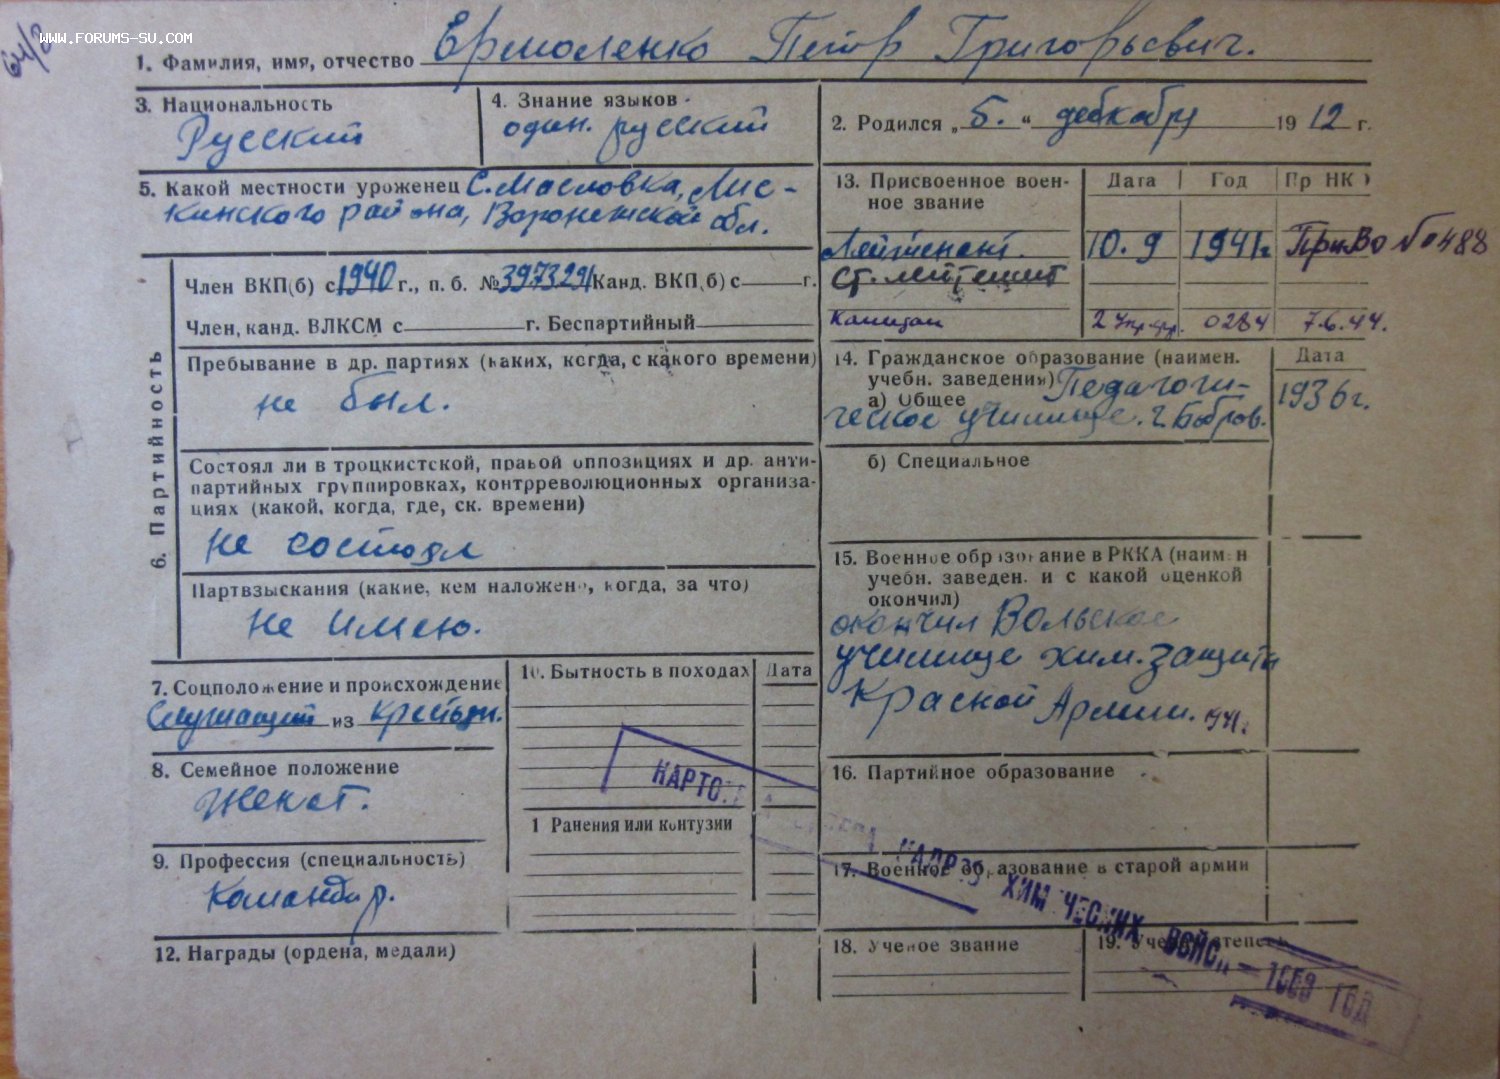 64/2
WWW.FORUMS-SU.COM
1. Фамилия, имя, отчество Ермоленко Петр Григорьевич.
3. Национальность
Русский
4. Знание языков
один. русский
2. Родился „5.“ дебкабру 1912 г.
5. Какой местности уроженец С. Масловка, Лис-
кинского района, Воронежской обл.
13. Присвоенное воен-
ное звание
Дата Год Пр НКО
Лейтенант. 10.9 1941г ПриВо № 0488
Ст. лейтенант
Капитан 2 Укр. фр. 0284 7.6.44.
6. Партийность
Член ВКП(б) с 1940 г., п. б. № 3973291 Канд. ВКП(б) с г.
Член, канд. ВЛКСМ с г. Беспартийный
Пребывание в др. партиях (каких, когда, с какого времени)
не был.
Состоял ли в троцкистской, правой оппозициях и др. анти-
партийных группировках, контрреволюционных организа-
циях (какой, когда, где, ск. времени)
не состоял
Партвзыскания (какие, кем наложено, когда, за что)
Не имею.
14. Гражданское образование (наимен.
учебн. заведения)
а) Общее Педагоги-
ческое училище. г. Бобров.
Дата
1936г.
б) Специальное
15. Военное образование в РККА (наимен
учебн. заведен. и с какой оценкой
окончил)
окончил Вольское
училище хим. защиты
Красной Армии. 1941г.
7. Соцположение и происхождение
Служащий из крестьян.
8. Семейное положение
Женат.
9. Профессия (специальность)
Командир.
10. Бытность в походах Дата
1 Ранения или контузии
12. Награды (ордена, медали)
16. Партийное образование
17. Военное образование в старой армии
18. Ученое звание
19. Ученая степень
КАРТОТЕКА КАДРОВ ХИМИЧЕСКИХ ВОЙСК ГОД